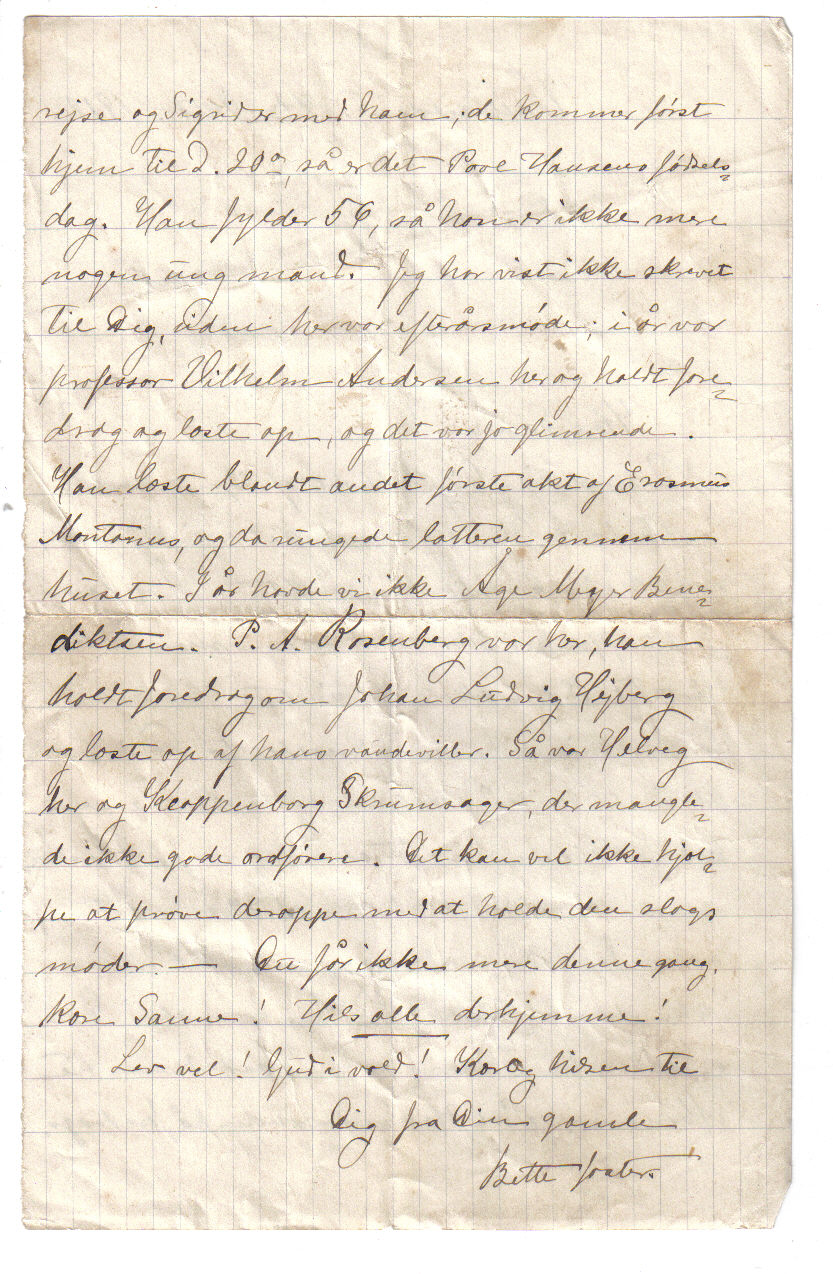 rejse og Sigrid er med ham; de kommer først
hjem til d. 20de, så er det Poul Hansens fødsels-
dag. Han fylder 56, så han er ikke mere
nogen ung mand. Jeg har vist ikke skrevet
til Dig, siden her var efterårsmøde; i år var
professor Vilhelm Andersen her og holdt fore-
drag og læste op, og det var jo glimrende.
Han læste blandt andet første akt af Erasmus
Montanus, og da rungede latteren gennem
huset. I år havde vi ikke Åge Meyer Bene-
diktsen. P. A. Rosenberg var her, han
holdt foredrag om Johan Ludvig Hejberg
og læste op af hans vaudeviller. Så var Helveg
her og Kloppenborg Skrumsager, der mangle-
de ikke gode ordførere. Det kan vel ikke hjæl-
pe at prøve deroppe med at holde den slags
møder — Du får ikke mere denne gang.
Kære Sanne! Hils alle derhjemme!
Lev vel! Gud i vold! Kærlig hilsen til
Dig fra Din gamle
Bette